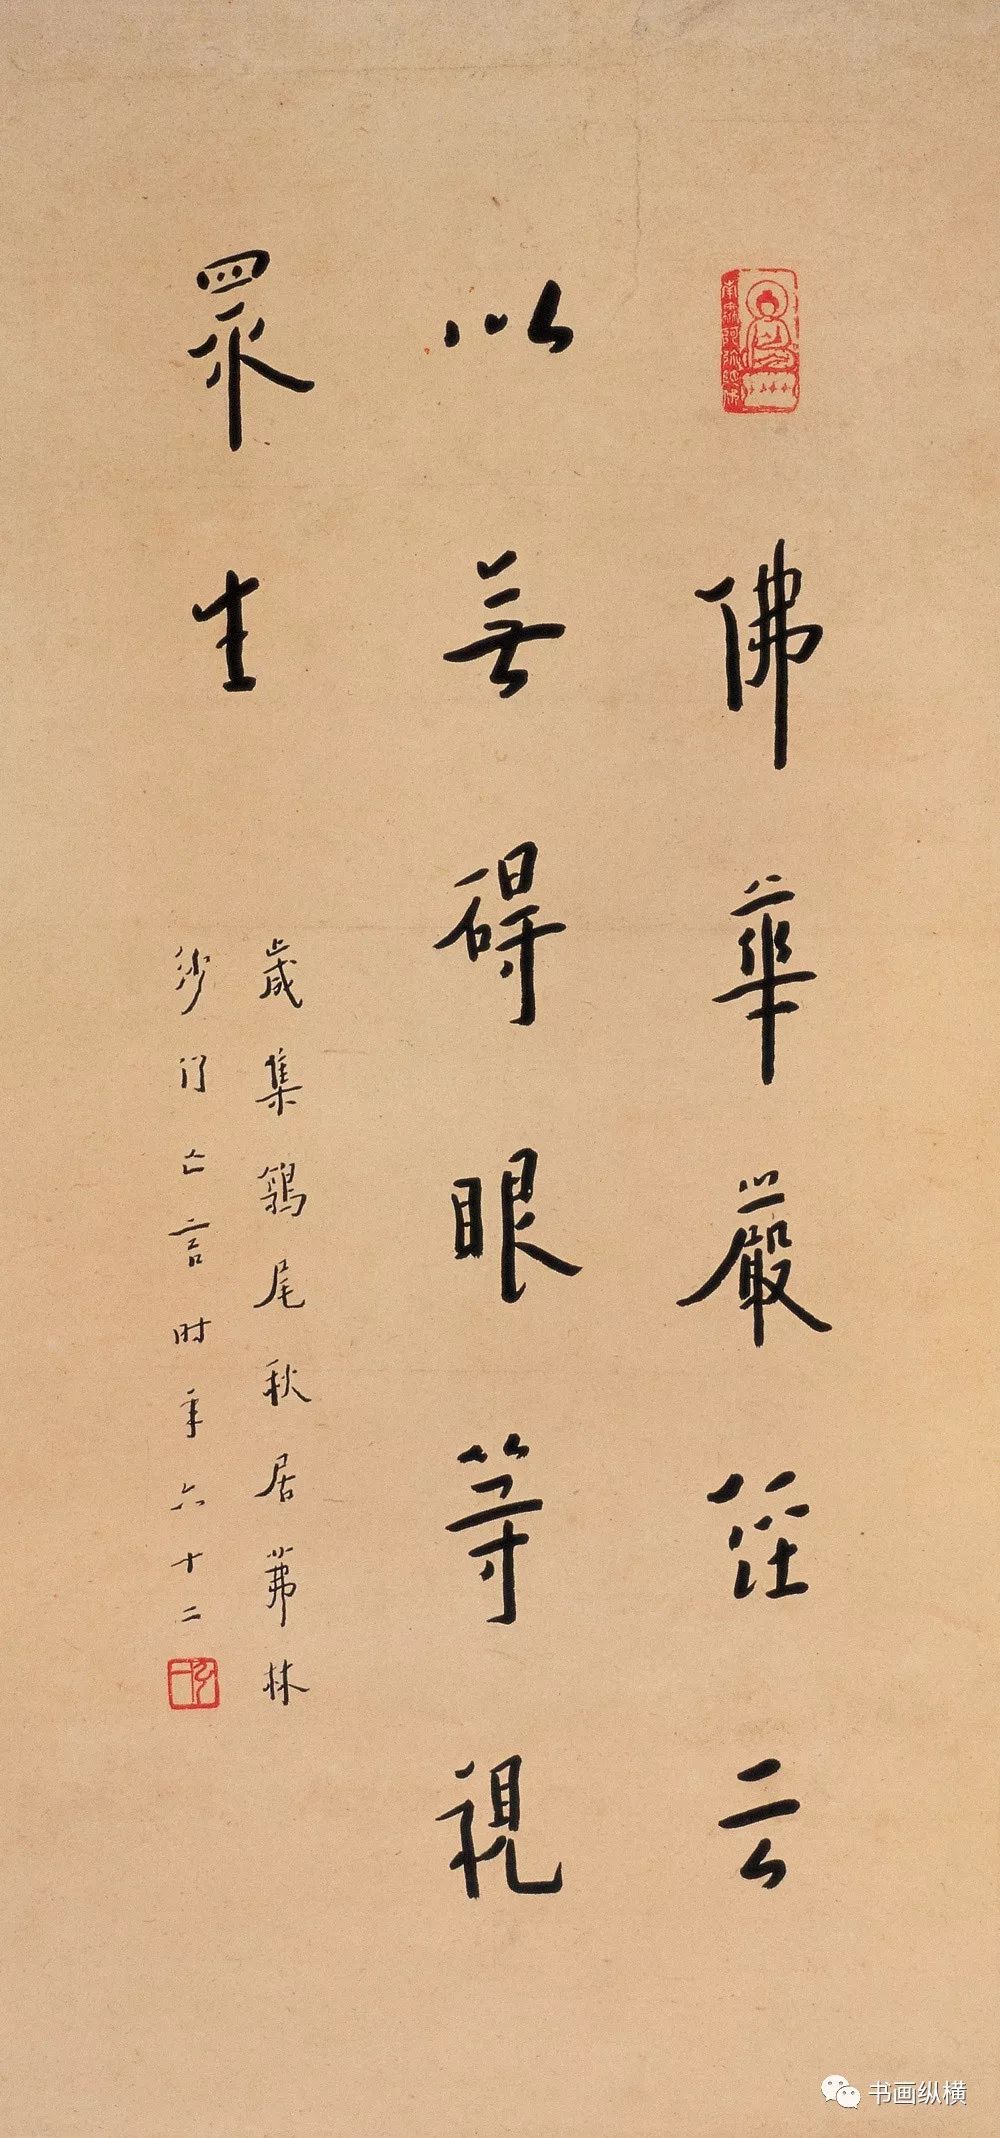 南無阿彌陀佛
佛華嚴經云
以無碍眼等視
眾生
歲集鶉尾秋居茀林
沙門亡言时年六十二
弘一
书画纵横